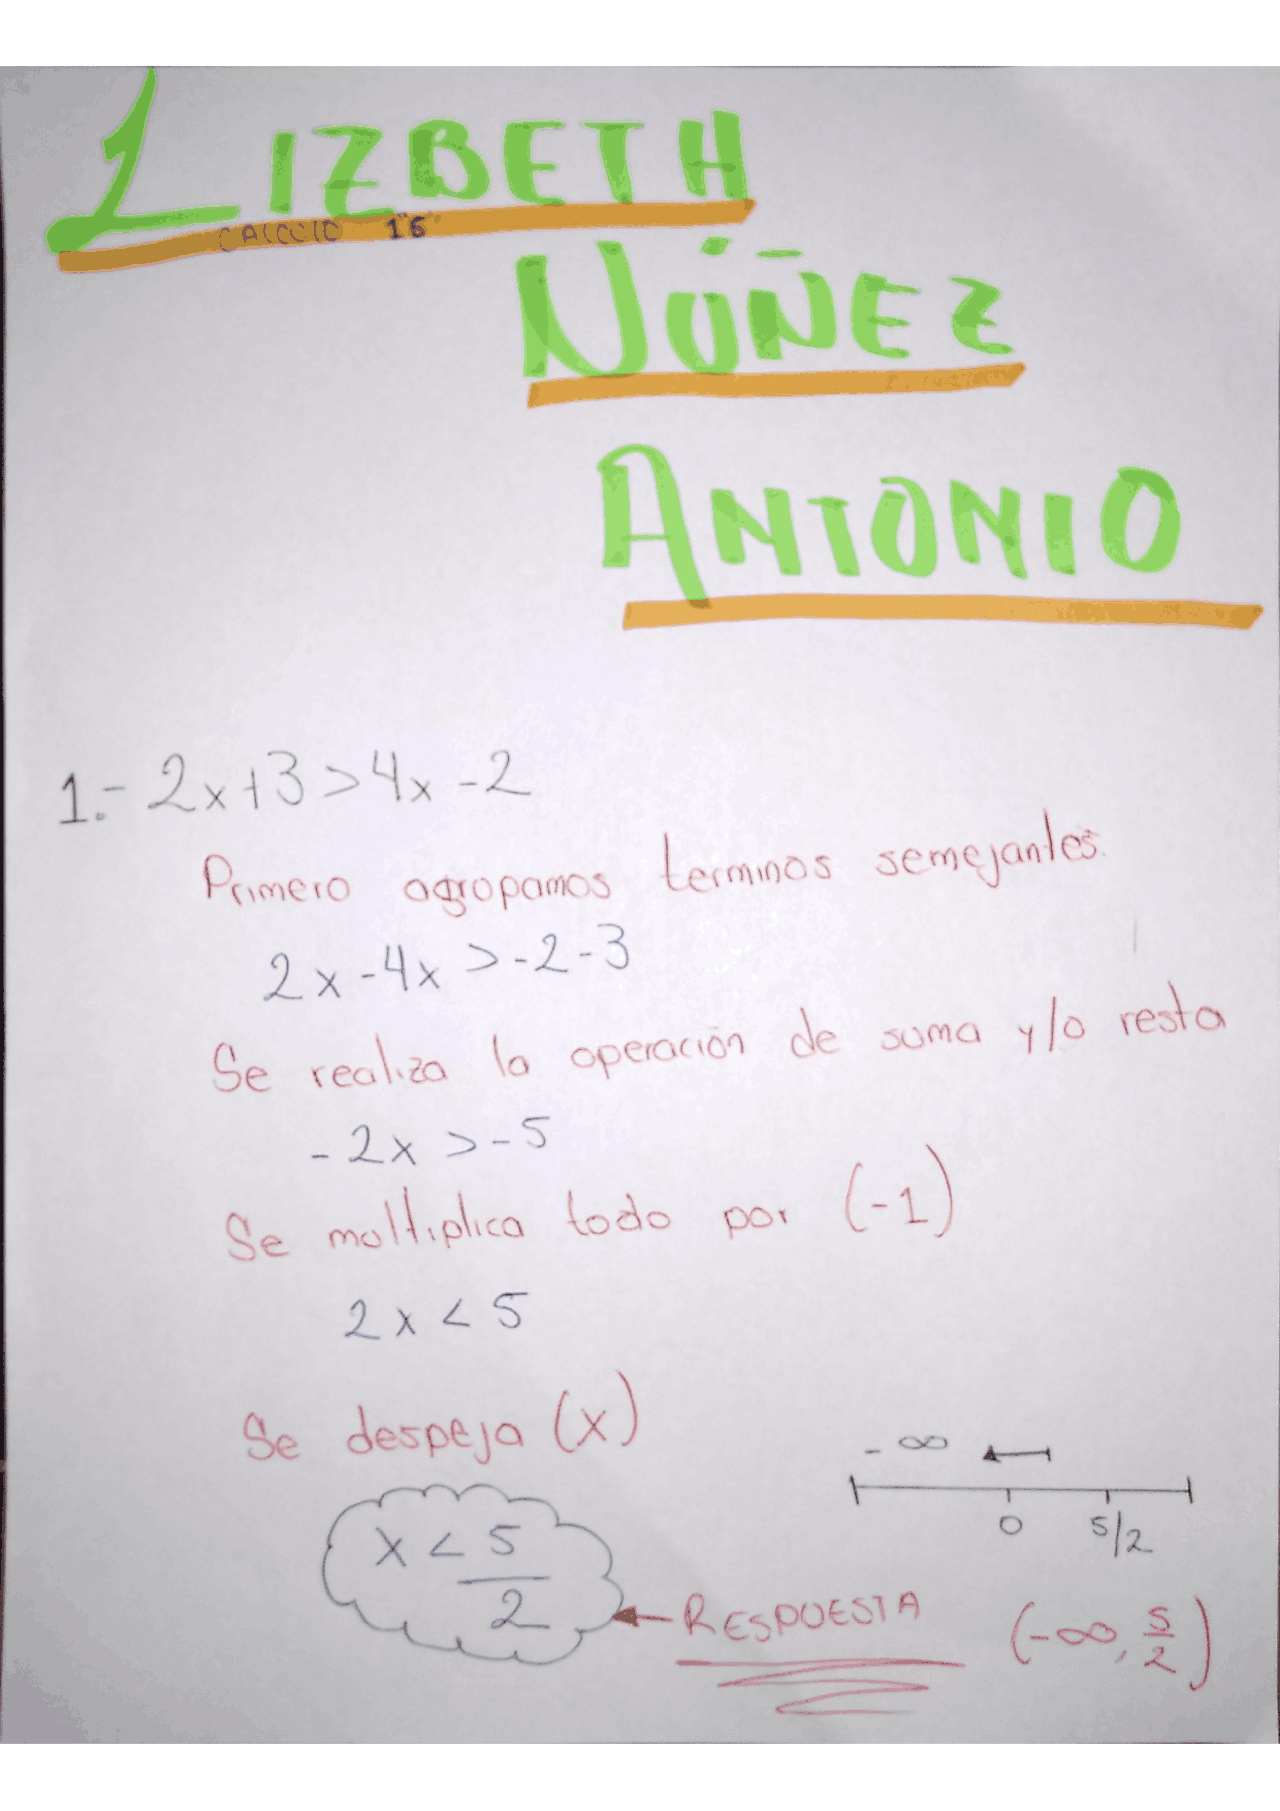 LIZBETH
CALCULO 1"6"
NÚÑEZ
ANTONIO
1.- 2x+3>4x-2
Primero agrupamos terminos semejantes.
2x-4x>-2-3
Se realiza la operación de suma y/o resta
-2x>-5
Se multiplica todo por (-1)
2x<5
Se despeja (x)
-∞
0 5/2
x<5/2
RESPUESTA (-∞, 5/2)